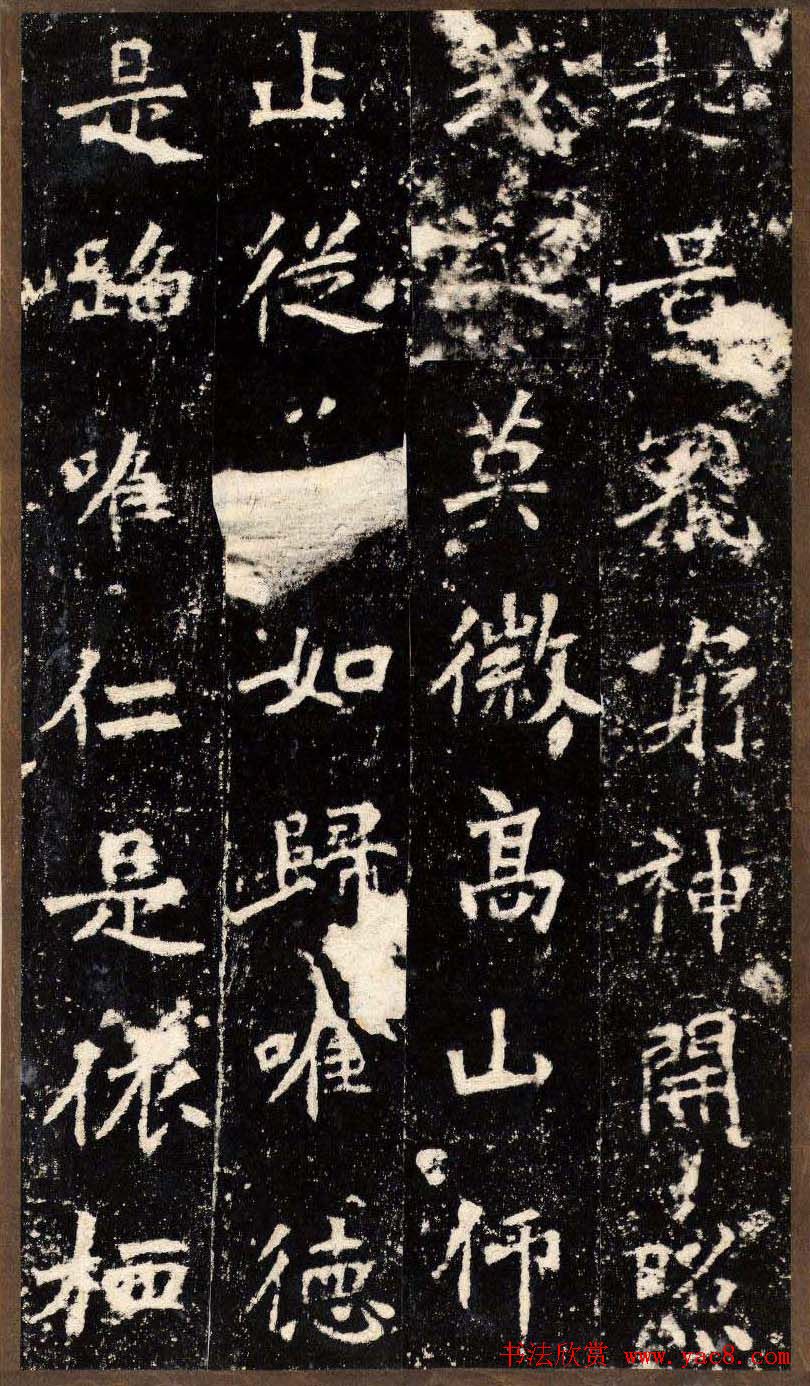 起号羆窮神開照
我□莫徽高山仰
止從□如歸唯德
是路唯仁是依栖
书法欣赏 www.yac8.com